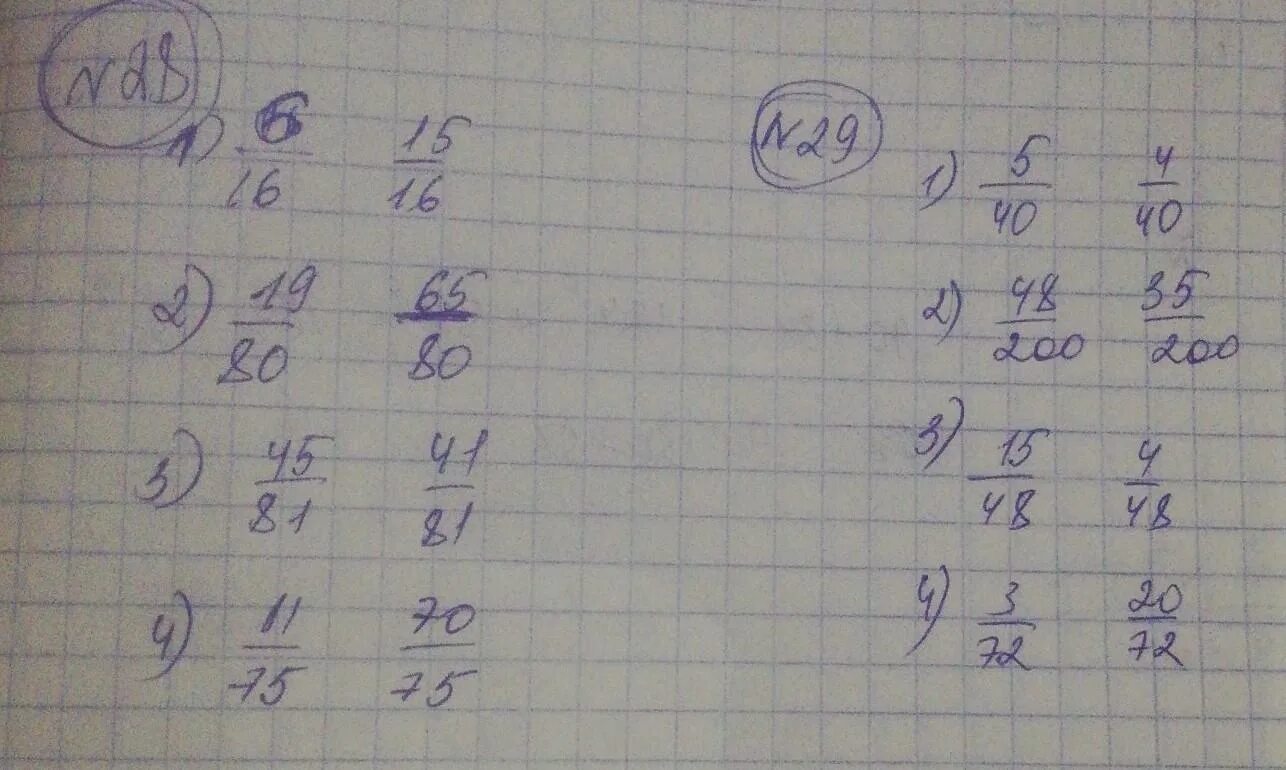 N28
1) 6/16 15/16
2) 19/80 65/80
3) 45/81 41/81
4) 11/75 70/75
N29
1) 5/40 4/40
2) 48/200 35/200
3) 15/48 4/48
4) 3/72 20/72